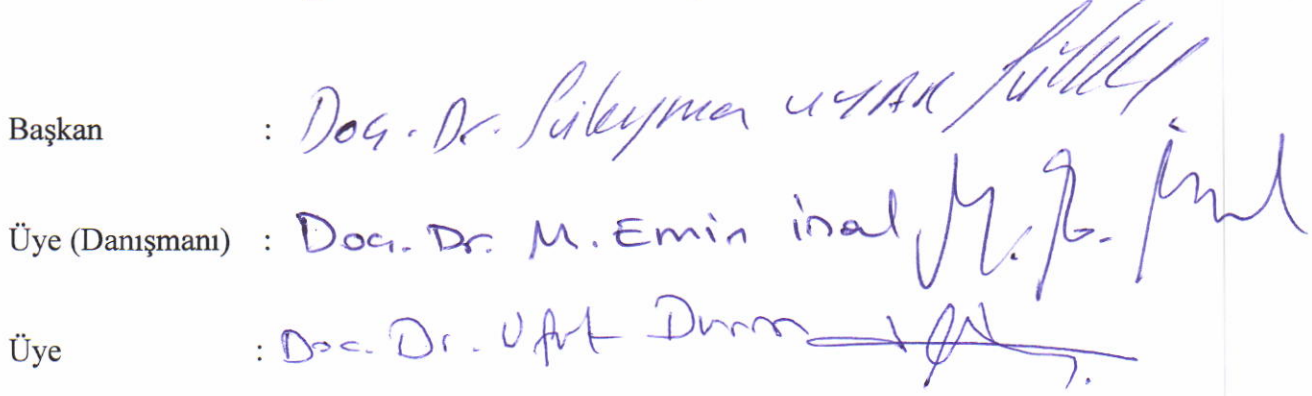 Başkan : Doç. Dr. Süleyman UYAR
Üye (Danışmanı) : Doç. Dr. M. Emin inal M. E. inal
Üye : Doç. Dr. Ufuk